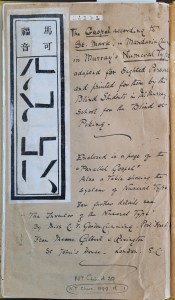 馬可
福音
The Gospel according to
St. Mark, in Mandarin
in Murray's Numeral Type
adapted for Sighted Persons
and printed for them by the
Blind Students in Mr. Murray's
School for the Blind at
Peking.
Enclosed is a page of the
"Parallel Gospel"
Also a table showing the
system of Numeral Type
For further details see
"The Inventor of the Numeral Type"
By Miss C. F. Gordon Cumming
from Messrs Gilbert & Rivington
St. John's House, London, E.C.